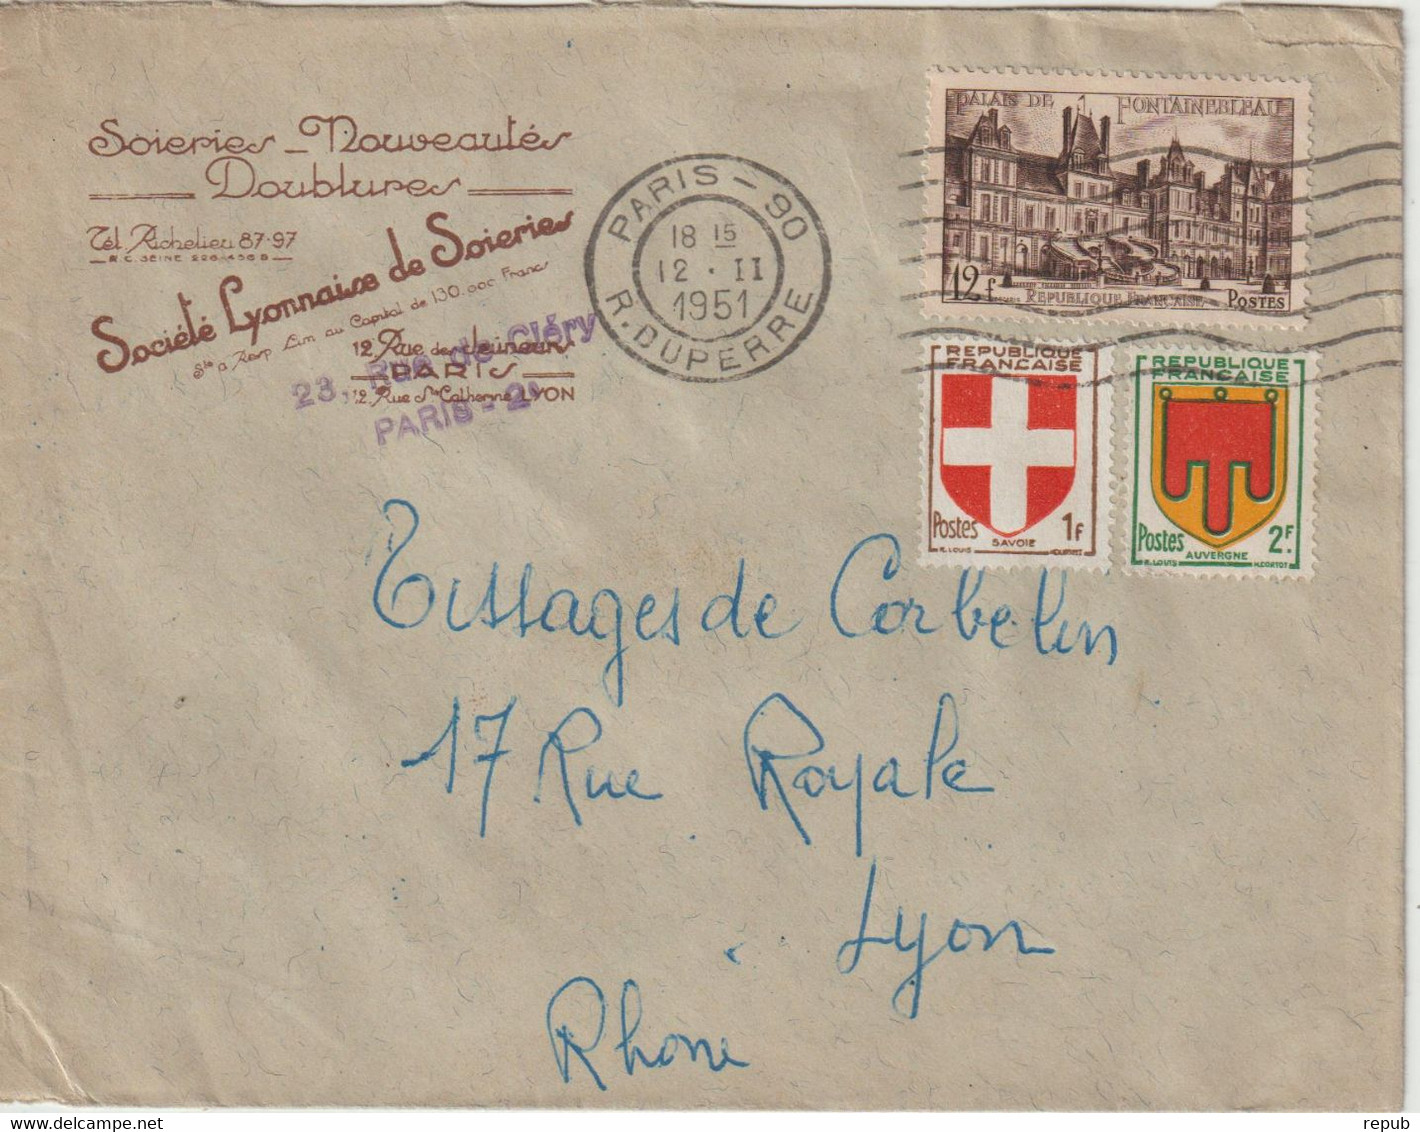 Soieries - Nouveautés
Doublures
Tél. Richelieu 87-97
R.C. SEINE 226.456 B
Société Lyonnaise de Soieries
Sté à Resp. Lim au Capital de 130.000 Francs
12, Rue des Jeûneurs
PARIS
12, Rue Ste Catherine LYON
23, Rue de Cléry
PARIS - 2e
PARIS - 90
18 15
12 · II
1951
R. DUPERRE
PALAIS DE FONTAINEBLEAU
12 f
REPUBLIQUE FRANCAISE POSTES
REPUBLIQUE
FRANCAISE
Postes 1F
SAVOIE
R. LOUIS
REPUBLIQUE
FRANÇAISE
Postes 2F
AUVERGNE
R. LOUIS H.CORTOT
Tissages de Corbelin
17 Rue Royale
Lyon
Rhone
www.delcampe.net
repub